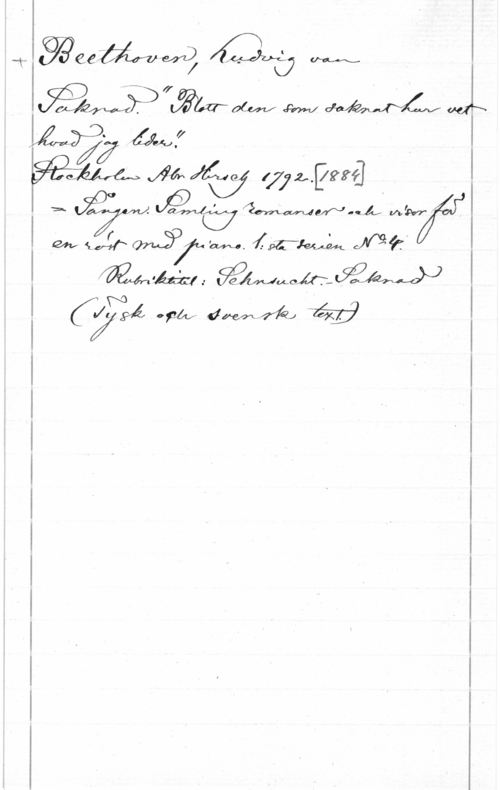 + Beethoven, Ludvig van
Saknad. "Blott den som saknat har vet
hvad jag lider".
Stockholm Abr Hirsch 1792. [1884]
= Sången. Samling romanser och visor för
en röst med piano. 1:sta serien No 4.
Rubriktitel: Sehnsucht. - Saknad
(Tysk och svensk text)